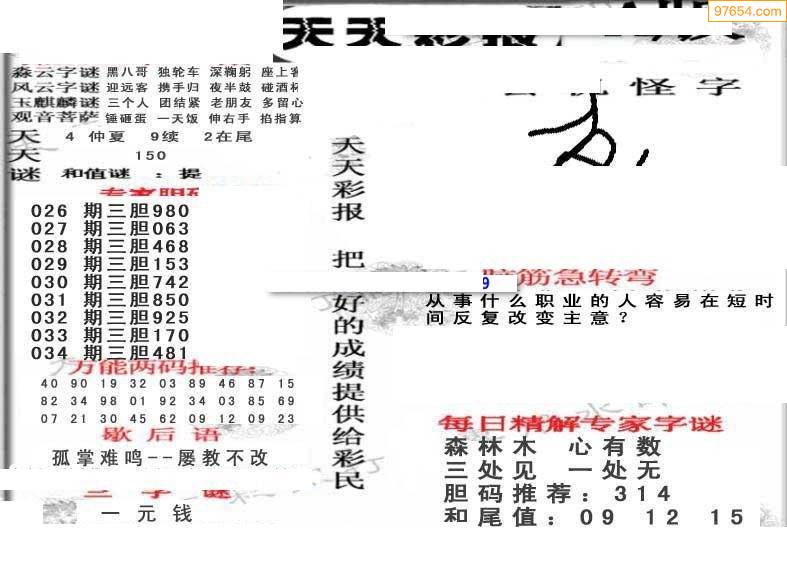 97654.com
天天彩报
森云字谜 黑八哥 独轮车 深鞠躬 座上客
风云字谜 迎远客 携手归 夜半鼓 碰酒杯
玉麒麟谜 三个人 团结紧 老朋友 多留心
观音菩萨 锤砸蛋 一天饭 伸右手 掐指算
天 4 仲夏 9续 2在尾
天 150
谜 和值谜 : 提
026 期三胆980
027 期三胆063
028 期三胆468
029 期三胆153
030 期三胆742
031 期三胆850
032 期三胆925
033 期三胆170
034 期三胆481
万能两码推荐:
40 90 19 32 03 89 46 87 15
82 34 98 01 92 34 03 85 69
07 21 30 45 62 09 12 09 23
歇后语
孤掌难鸣--屡教不改
三字谜
一元钱
天天彩报 把
好的成绩提供给彩民
怪字
9
脑筋急转弯
从事什么职业的人容易在短时
间反复改变主意？
每日精解专家字谜
森林木 心有数
三处见 一处无
胆码推荐: 314
和尾值: 09 12 15